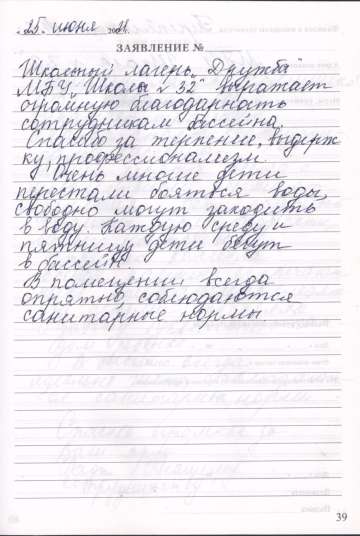 25. июня 2021.
ЗАЯВЛЕНИЕ №
Школьный лагерь "Дружба"
МБУ "Школы №32" выражает
огромную благодарность
сотрудникам бассейна.
Спасибо за терпение, выдерж
ку, профессионализм.
Очень многие дети
перестали бояться воды,
свободно могут заходить
в воду. Каждую среду и
пятницу дети бегут
в бассейн.
В помещении всегда
опрятно, соблюдаются
санитарные нормы
39